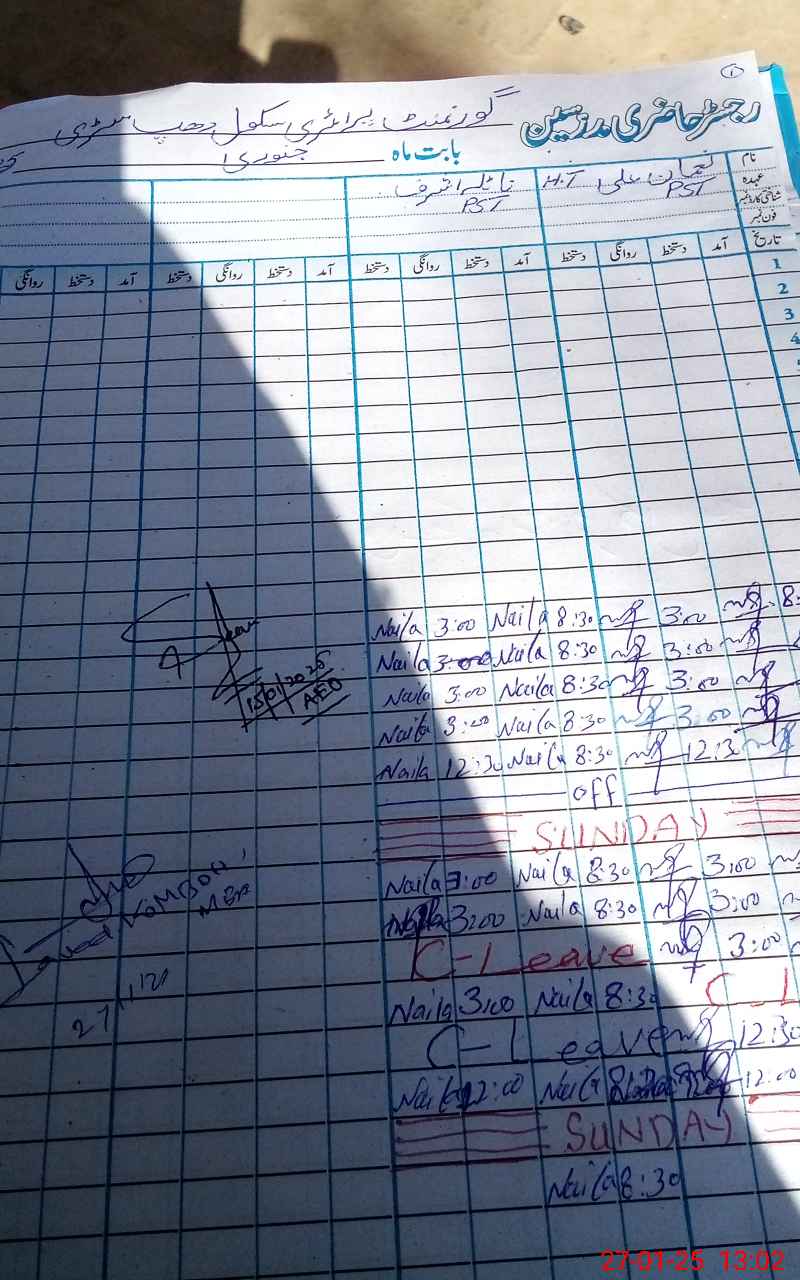 ①
رجسٹر حاضری مدرسین گورنمنٹ پرائمری سکول دھپ سڑی
بابت ماہ جنوری
نام نعمان علی H.T نائلہ اشرف
عہدہ PST PST
شناختی کارڈ نمبر
فون نمبر
تاریخ آمد دستخط روانگی دستخط آمد دستخط روانگی دستخط آمد دستخط روانگی دستخط آمد دستخط روانگی
1
2
3
4
Naila 3:00 Naila 8:30 3:00 8:
Naila 3:00 Naila 8:30 3:00
Naila 3:00 Naila 8:30 3:00
15/01/2025
AEO
Naila 3:00 Naila 8:30 3:00
Naila 12:30 Naila 8:30 12:3
off
SUNDAY
Naila 3:00 Naila 8:30 3:00
Naila 3:00 Naila 8:30 3:00
KOMBOH, MEA
C-Leave 3:00
Naila 3:00 Naila 8:30 C-L
27/1/20
C-Leave 12:30
Naila 12:00 Naila 12:00
SUNDAY
Naila 8:30
27-01-25 13:02